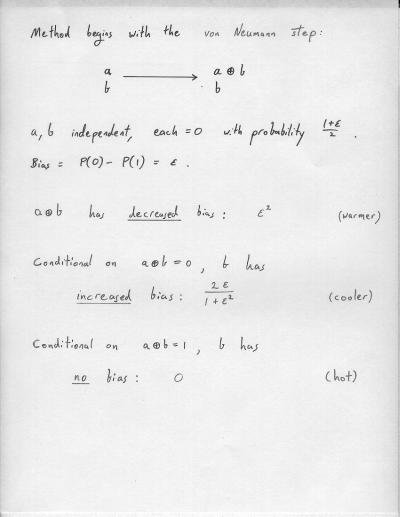 Method begins with the von Neumann step:
a ⟶ a ⊕ b
b b
a, b independent, each = 0 with probability (1+ε)/2 .
Bias = P(0) - P(1) = ε .
a⊕b has decreased bias : ε² (warmer)
Conditional on a⊕b = 0 , b has
increased bias : 2ε/(1+ε²) (cooler)
Conditional on a⊕b = 1 , b has
no bias : 0 (hot)